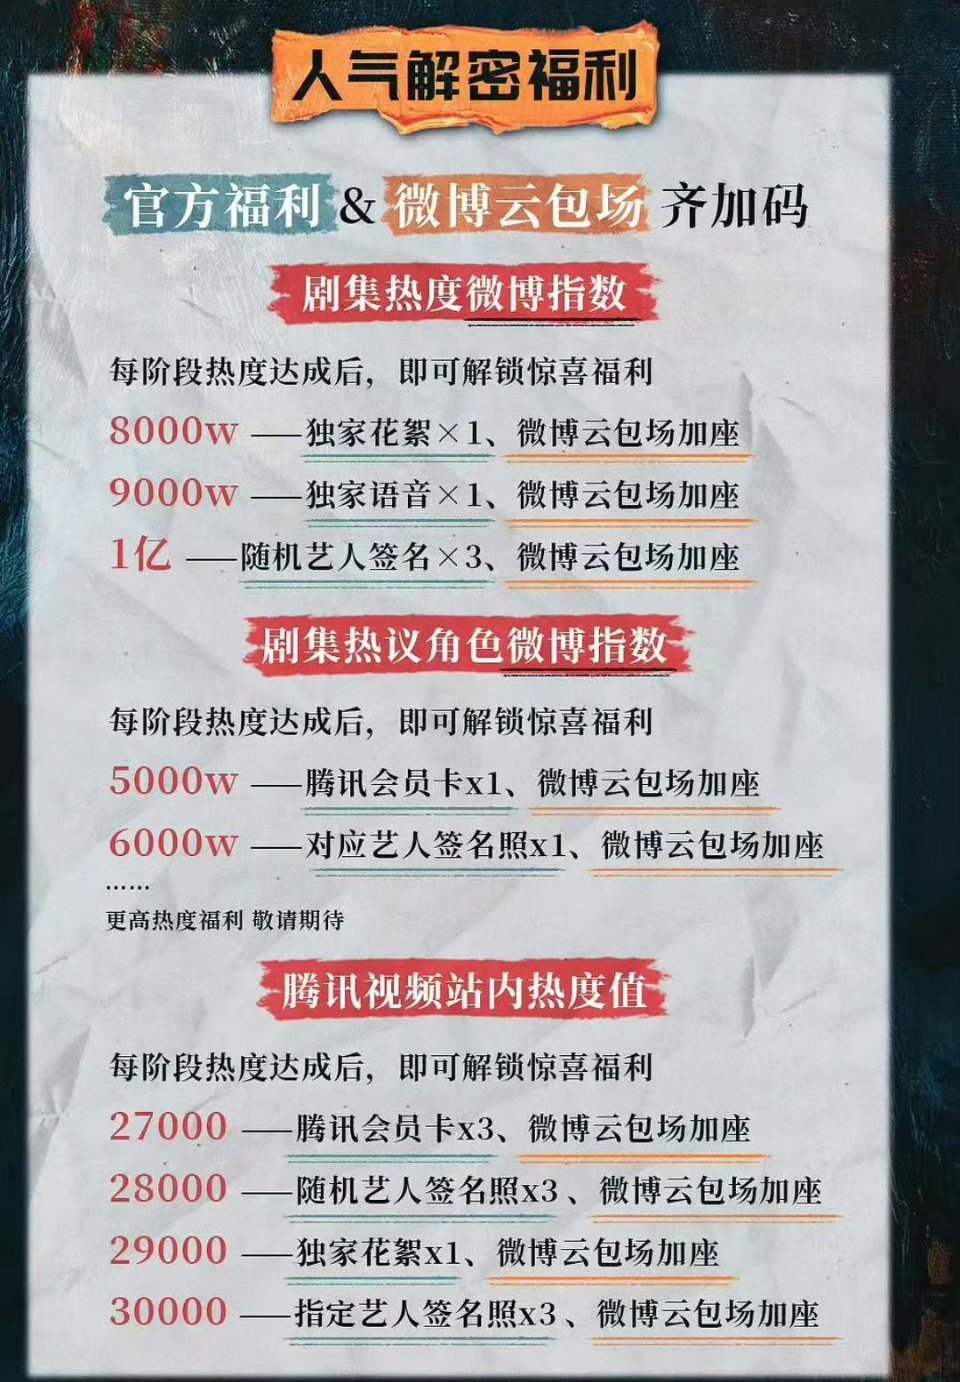 人气解密福利
官方福利 & 微博云包场 齐加码
剧集热度微博指数
每阶段热度达成后，即可解锁惊喜福利
8000w ——独家花絮×1、微博云包场加座
9000w ——独家语音×1、微博云包场加座
1亿 ——随机艺人签名×3、微博云包场加座
剧集热议角色微博指数
每阶段热度达成后，即可解锁惊喜福利
5000w ——腾讯会员卡x1、微博云包场加座
6000w ——对应艺人签名照x1、微博云包场加座
……
更高热度福利 敬请期待
腾讯视频站内热度值
每阶段热度达成后，即可解锁惊喜福利
27000 ——腾讯会员卡x3、微博云包场加座
28000 ——随机艺人签名照x3、微博云包场加座
29000 ——独家花絮x1、微博云包场加座
30000 ——指定艺人签名照x3、微博云包场加座